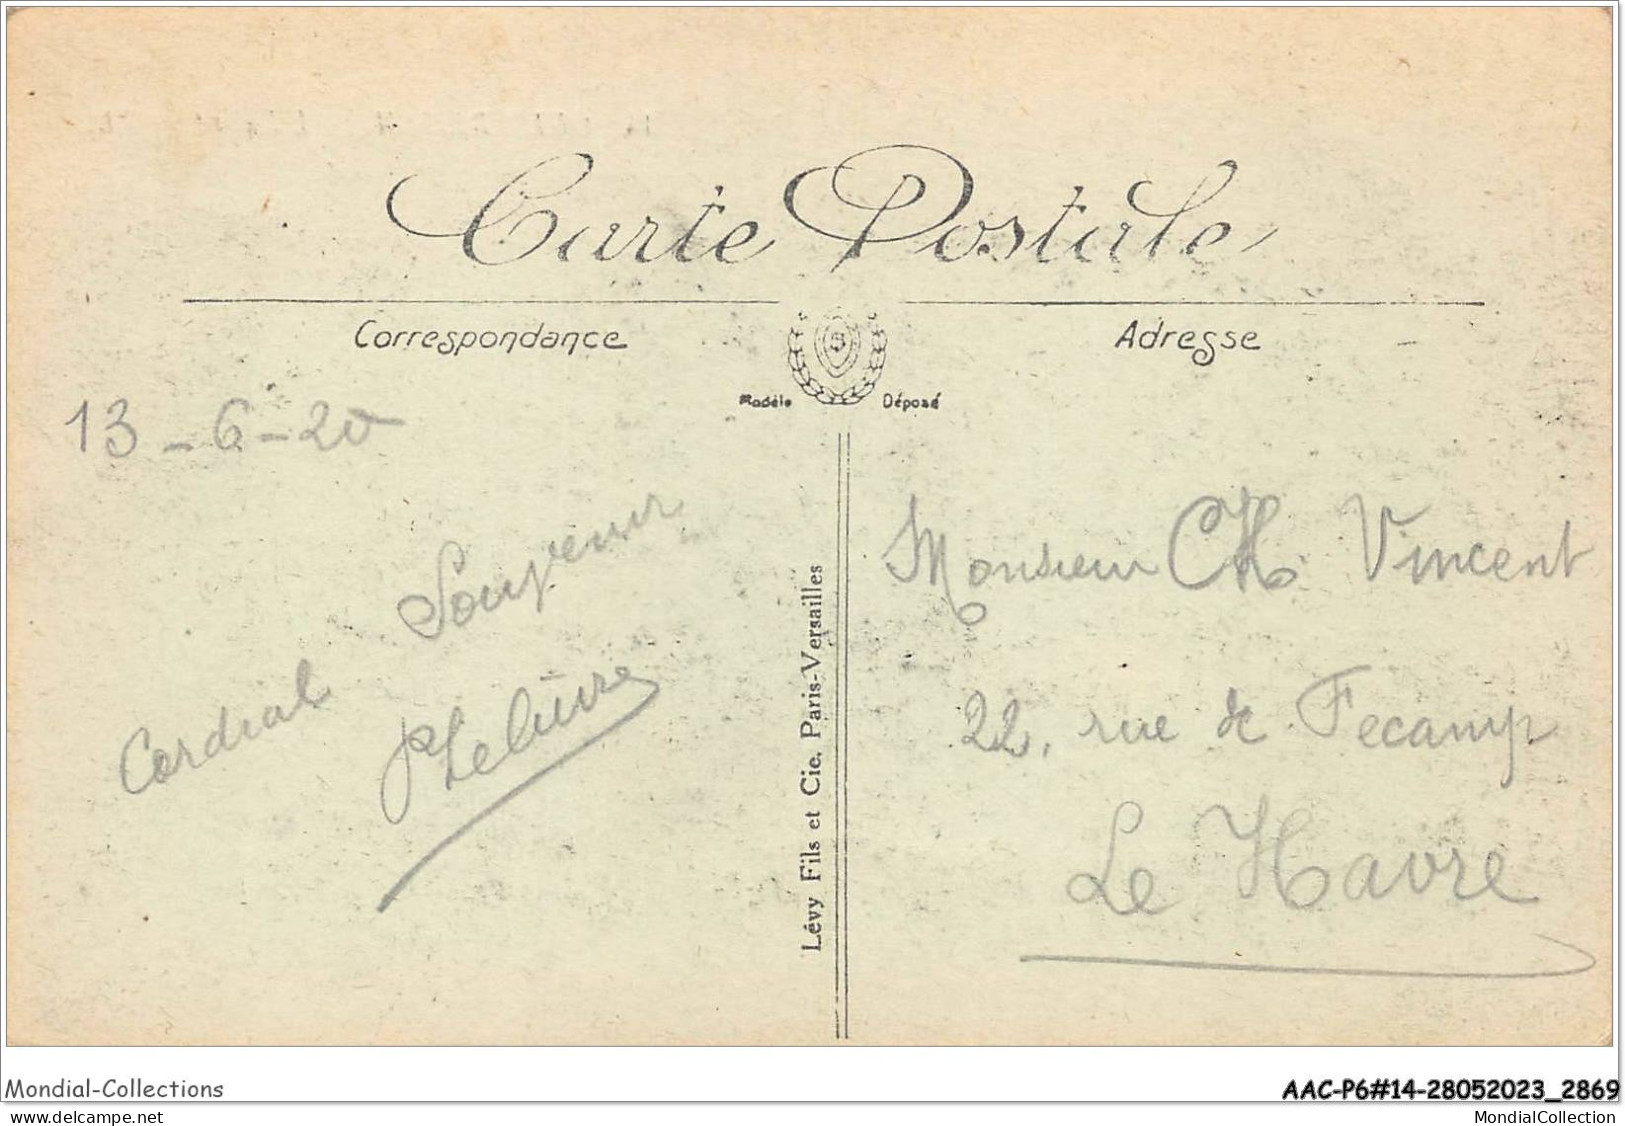 Carte Postale
Correspondance
Adresse
Modèle Déposé
13-6-20
Cordial Souvenir
PLelièvre
Lévy Fils et Cie. Paris-Versailles
Monsieur CH. Vincent
22, rue de Fecamp
Le Havre
Mondial-Collections
AAC-P6#14-28052023_2869
www.delcampe.net
MondialCollection